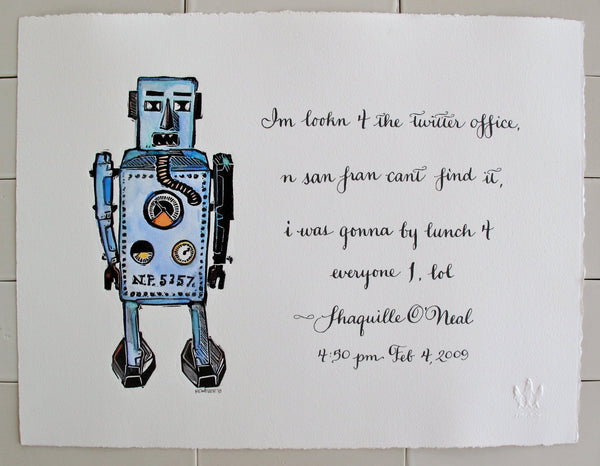 Im lookn 4 the twitter office,
n san fran cant find it,
i was gonna by lunch 4
everyone 1, lol
~Shaquille O'Neal
4:30 pm Feb 4, 2009
N.P. 5357